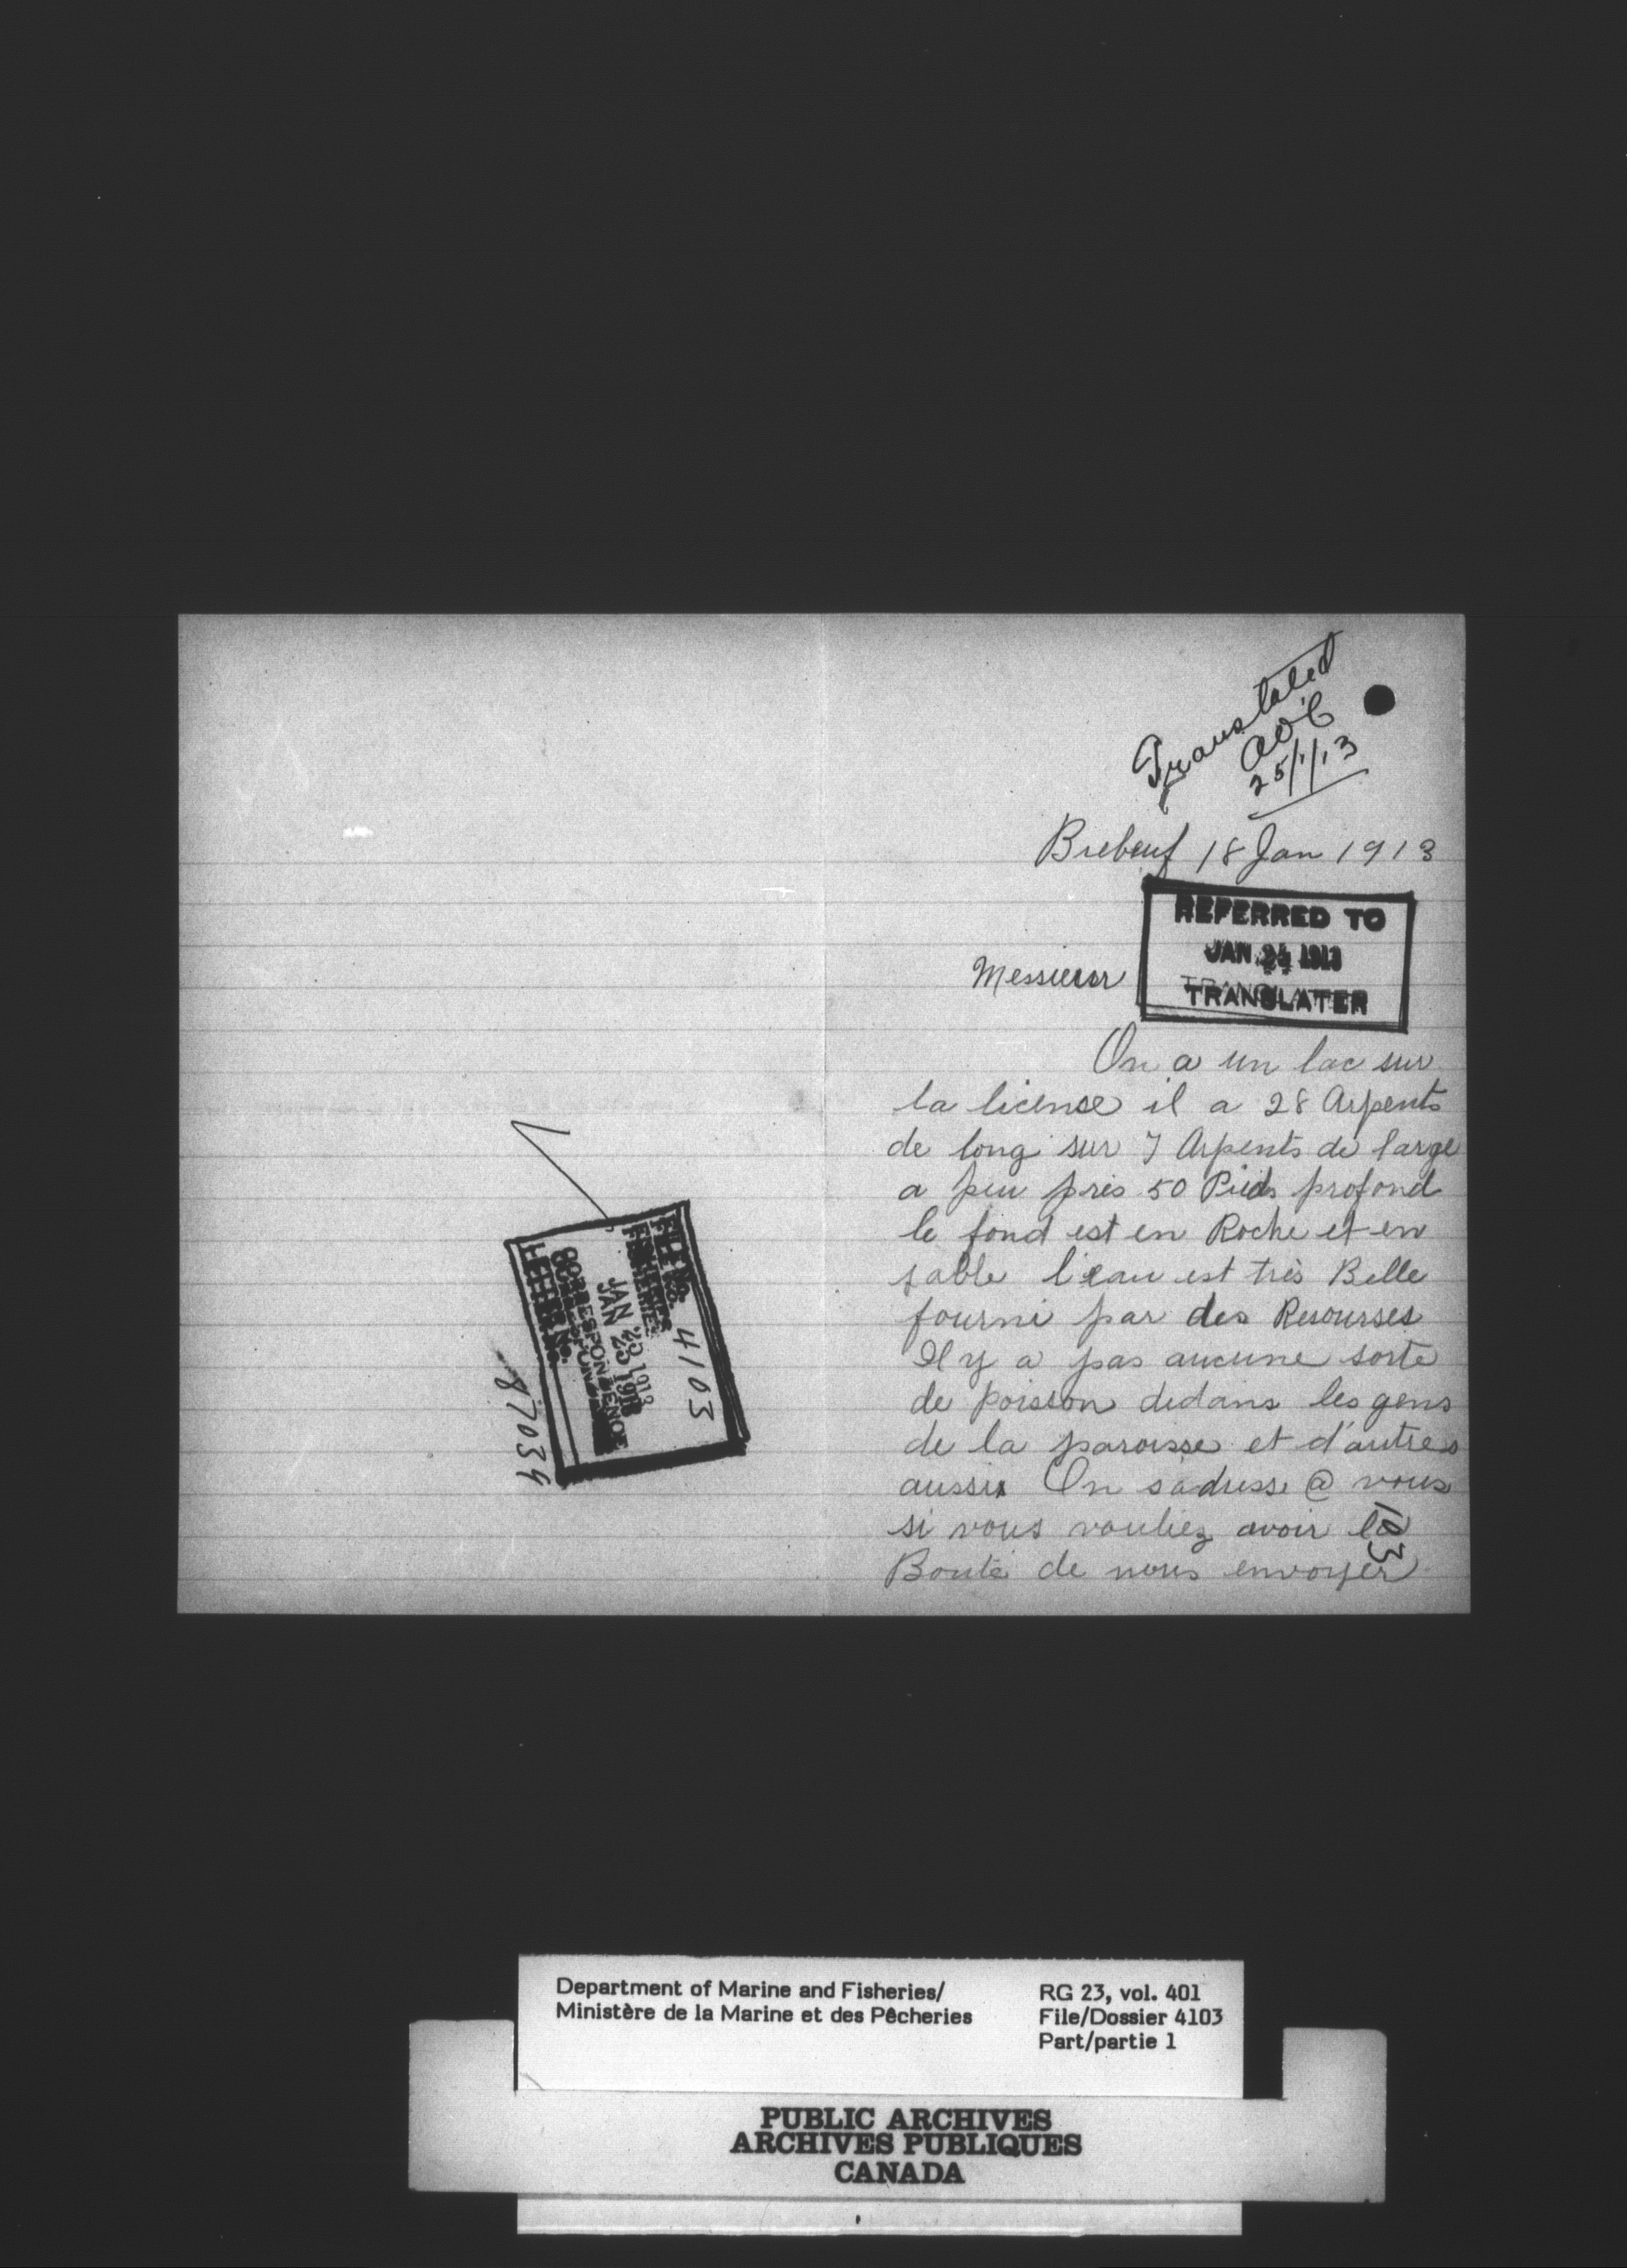 Translated
25/1/13
Brebeuf 18 Jan 1913
REFERRED TO
JAN 24 1913
TRANSLATER
Messieur
On a un lac sur
la license il a 28 Arpents
de long sur 7 Arpents de large
a peu près 50 Pieds profond
le fond est en Roche et en
sable l'eau est très Belle
fourni par des Resourses
Il y a pas aucune sorte
de poisson dedans les gens
de la paroisse et d'autres
aussi On s'adresse @ vous
si vous vouliez avoir la
Bonté de nous envoyer
103
FILE No. 4103
FISHERIES
JAN 25 1913
CORRESPONDENCE
LETTER No.
87034
Department of Marine and Fisheries/
Ministère de la Marine et des Pêcheries
RG 23, vol. 401
File/Dossier 4103
Part/partie 1
PUBLIC ARCHIVES
ARCHIVES PUBLIQUES
CANADA